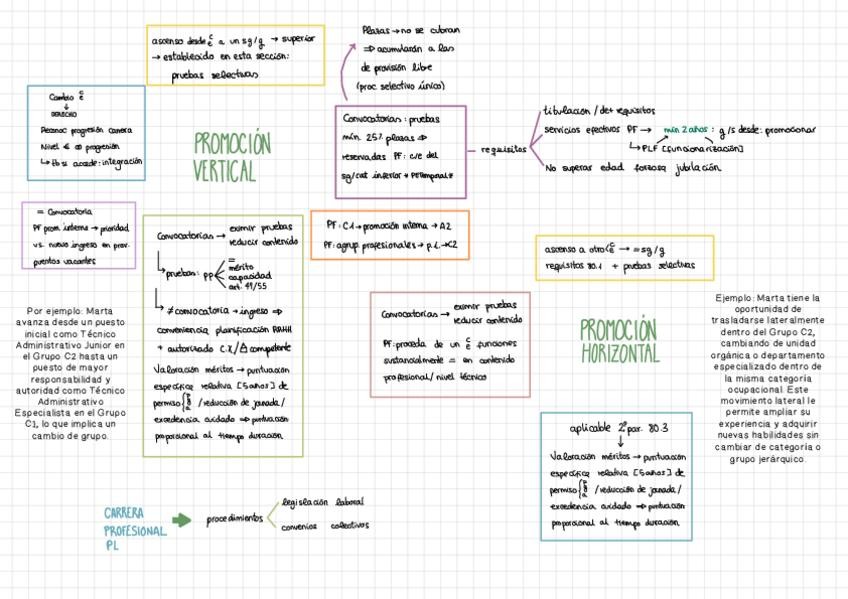 ascenso desde c/e a un sg/g → superior
→ establecido en esta sección:
pruebas selectivas
Plazas → no se cubran
⇒ acumularán a las
de provisión libre
(proc. selectivo único)
Cambio c/e
↓
DERECHO
Reconoc progresión carrera
Nivel progresión
↳ accede: integración
PROMOCIÓN
VERTICAL
Convocatorias: pruebas
mín. 25% plazas ⇒
reservadas PF: c/e del
sg/cat inferior
requisitos
titulación / det requisitos
servicios efectivos PF → mín 2 años: g/s desde: promocionar
↳ PLF [funcionarización]
No superas edad forzosa jubilación
= Convocatoria
PF prom. interna → prioridad
vs. nuevo ingreso en prov.
puestos vacantes
Convocatorias → eximir pruebas
reducir contenido
↳ pruebas: pp
=
mérito
capacidad
art. 41/55
↳ ≠ convocatoria → ingreso ⇒
conveniencia planificación RRHH
+ autorizado competente
Valoración méritos → puntuación
específica relativa [5 años] de
permiso /reducción de jornada/
excedencia cuidado ⇒ puntuación
proporcional al tiempo duración
PF: C1 → promoción interna → A2
PF: agrup. profesionales → p.i. → C2
ascenso a otro c/e → = sg/g
requisitos 80.1 + pruebas selectivas
Convocatorias → eximir pruebas
reducir contenido
PF: proceda de un c/e funciones
sustancialmente = en contenido
profesional / nivel técnico
PROMOCIÓN
HORIZONTAL
Por ejemplo: Marta
avanza desde un puesto
inicial como Técnico
Administrativo Junior en
el Grupo C2 hasta un
puesto de mayor
responsabilidad y
autoridad como Técnico
Administrativo
Especialista en el Grupo
C1, lo que implica un
cambio de grupo.
Ejemplo: Marta tiene la
oportunidad de
trasladarse lateralmente
dentro del Grupo C2,
cambiando de unidad
orgánica o departamento
especializado dentro de
la misma categoría
ocupacional. Este
movimiento lateral le
permite ampliar su
experiencia y adquirir
nuevas habilidades sin
cambiar de categoría o
grupo jerárquico.
aplicable 2º par. 80.3
↓
Valoración méritos → puntuación
específica relativa [5 años] de
permiso /reducción de jornada/
excedencia cuidado ⇒ puntuación
proporcional al tiempo duración
CARRERA
PROFESIONAL
PL
procedimientos
legislación laboral
convenios colectivos